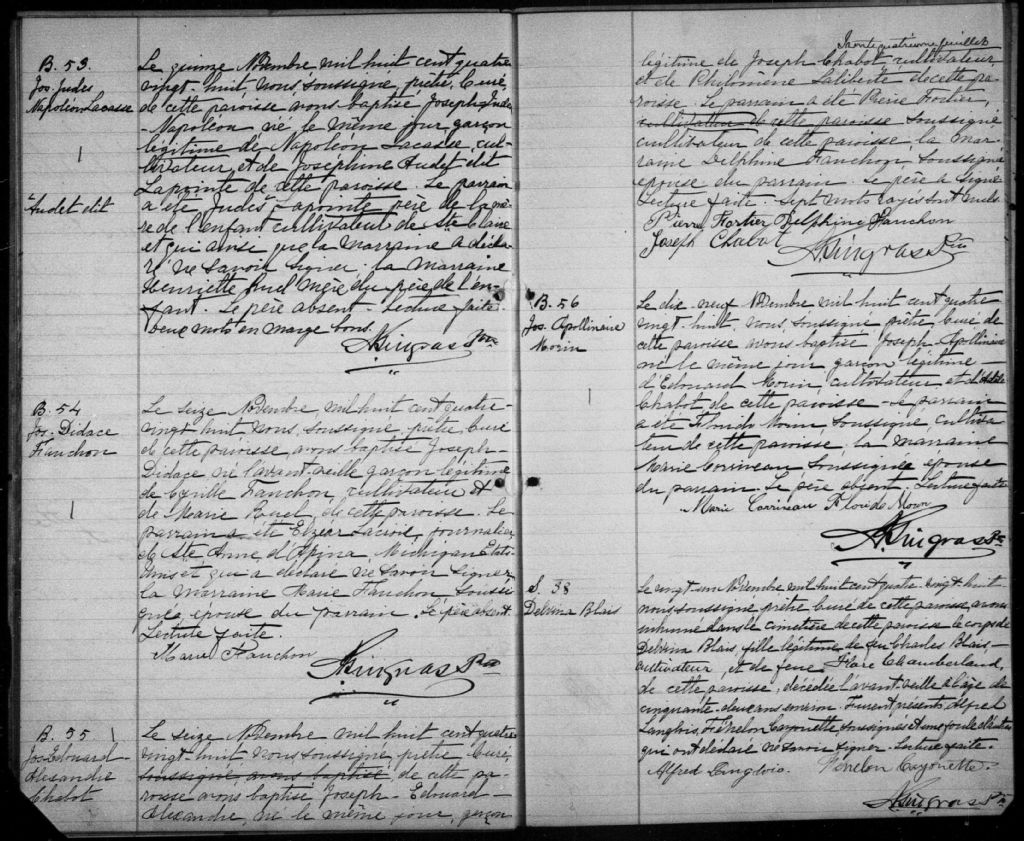 B. 53.
Jos. Judes
Napoléon Lacasse
1
Audet dit
Le quinze Novembre mil huit cent quatre
vingt-huit, nous, soussigné, prêtre, curé,
de cette paroisse avons baptisé Joseph Jude
-Napoléon né le même jour garçon
légitime de Napoléon Lacasse, cul-
tivateur et de Joséphine Audet dit
Lapointe de cette paroisse. Le parrain
a été Judes Lapointe père de la mè-
re de l'enfant cultivateur de Ste Claire
et qui ainsi que la marraine a décla-
ré ne savoir signer. la marraine
Henriette du père de l'en-
fant. Le père absent. Lecture faite.
Deux mots en marge bons.
NGingras Ptre
B. 54
Jos. Didace
Fauchon
1
Le seize Novembre mil huit cent quatre-
vingt huit nous, soussigné, prêtre, curé
de cette paroisse, avons baptisé Joseph-
Didace né l'avant-veille garçon légitime
de Cyrille Fauchon, cultivateur et
de Marie Ruel, de cette paroisse. Le
parrain a été Elzéar journalier
de Ste Anne d'Alpina Michigan Etats
Unis et qui a déclaré ne savoir signer
la marraine Marie Fauchon soussi
gnée, épouse du parrain. Le père absent
Lecture faite.
Marie Fauchon
NGingras Ptre
B. 55 1
Jos. Edouard-
Alexandre
Chabot
Le seize Novembre mil huit cent quatre
vingt-huit nous soussigné prêtre curé,
soussigné avons baptisé de cette pa-
roisse avons baptisé Joseph-Edouard-
Alexandre, né le même jour, garçon
Trente quatrième feuillet
légitime de Joseph Chabot cultivateur
et de Philomène Laliberté de cette pa-
roisse. Le parrain a été Pierre Fortier,
cultivateur de cette paroisse soussigné
cultivateur de cette paroisse la mar-
raine Delphine Fauchon soussignée
épouse du parrain. Le père a signé
Lecture faite. Sept mots rayés sont nuls.
Pierre Fortier Delphine Fauchon
Joseph Chabot
NGingras Ptre
B. 56
Jos. Apollinaire
Morin
1
Le dix neuf Novembre mil huit cent quatre
vingt-huit, nous, soussigné prêtre, curé de
cette paroisse avons baptisé Joseph Apollinaire
né le même jour garçon légitime
d'Edouard Morin cultivateur et d'Adèle
Chabot de cette paroisse. Le parrain
a été Florido Morin, soussigné, cultiva
teur de cette paroisse, la marraine
Marie Corriveau, soussignée épouse
du parrain. Le père absent. Lecture faite
Marie Corriveau Florido Morin
NGingras Ptre
S. 38
Delvina Blais
Le vingt-un Novembre mil huit cent quatre-vingt huit
nous, soussigné prêtre curé de cette paroisse avons
inhumé dans le cimetière de cette paroisse le corps de
Delvina Blais, fille légitime de feu Charles Blais,
cultivateur, et de feue Flore Chamberland,
de cette paroisse, décédée l'avant-veille à l'âge de
cinquante-deux ans environ. Furent présents Alfred
Langlois, Fénelon Cayouette, soussignés et une foule d'autres
qui ont déclaré ne savoir signer. Lecture faite.
Alfred Langlois. Fénélon Cayouette.
NGingras Ptre